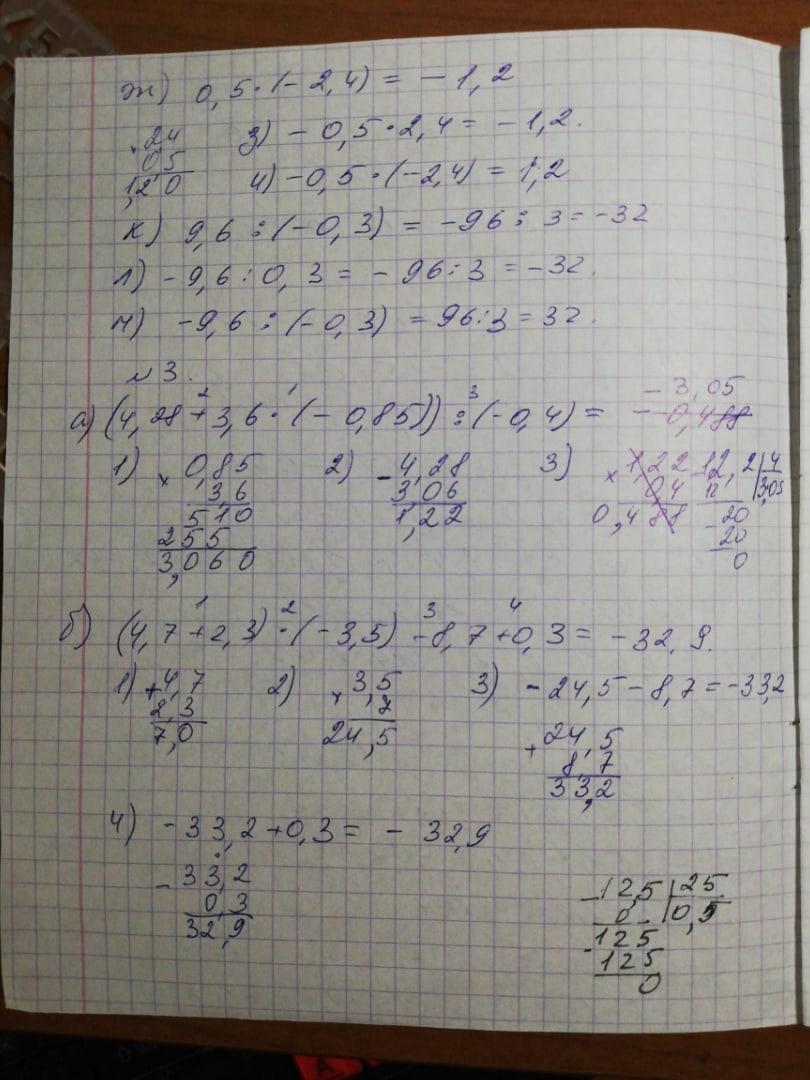 ж) 0,5·(-2,4) = -1,2
24
05
1,20
з) -0,5·2,4 = -1,2.
и) -0,5·(-2,4) = 1,2
к) 9,6 : (-0,3) = -96 : 3 = -32
л) -9,6 : 0,3 = -96 : 3 = -32.
м) -9,6 : (-0,3) = 96 : 3 = 32.
№3.
2 1 3
а) (4,28 + 3,6·(-0,85)) : (-0,4) = -3,05
-0,488
1) × 0,85
3,6
510
255
3,060
2) - 4,28
3 06
1,22
3) × 1,22
0,4
0,488
12,2 | 4
12 3,05
- 20
20
0
1 2 3 4
б) (4,7 + 2,3)·(-3,5) - 8,7 + 0,3 = -32,9.
1) + 4,7
2,3
7,0
2) × 3,5
7
24,5
3) -24,5 - 8,7 = -33,2
+ 24,5
8,7
33,2
4) -33,2 + 0,3 = -32,9
- 33,2
0,3
32,9
- 12,5 | 25
0 0,5
- 125
125
0